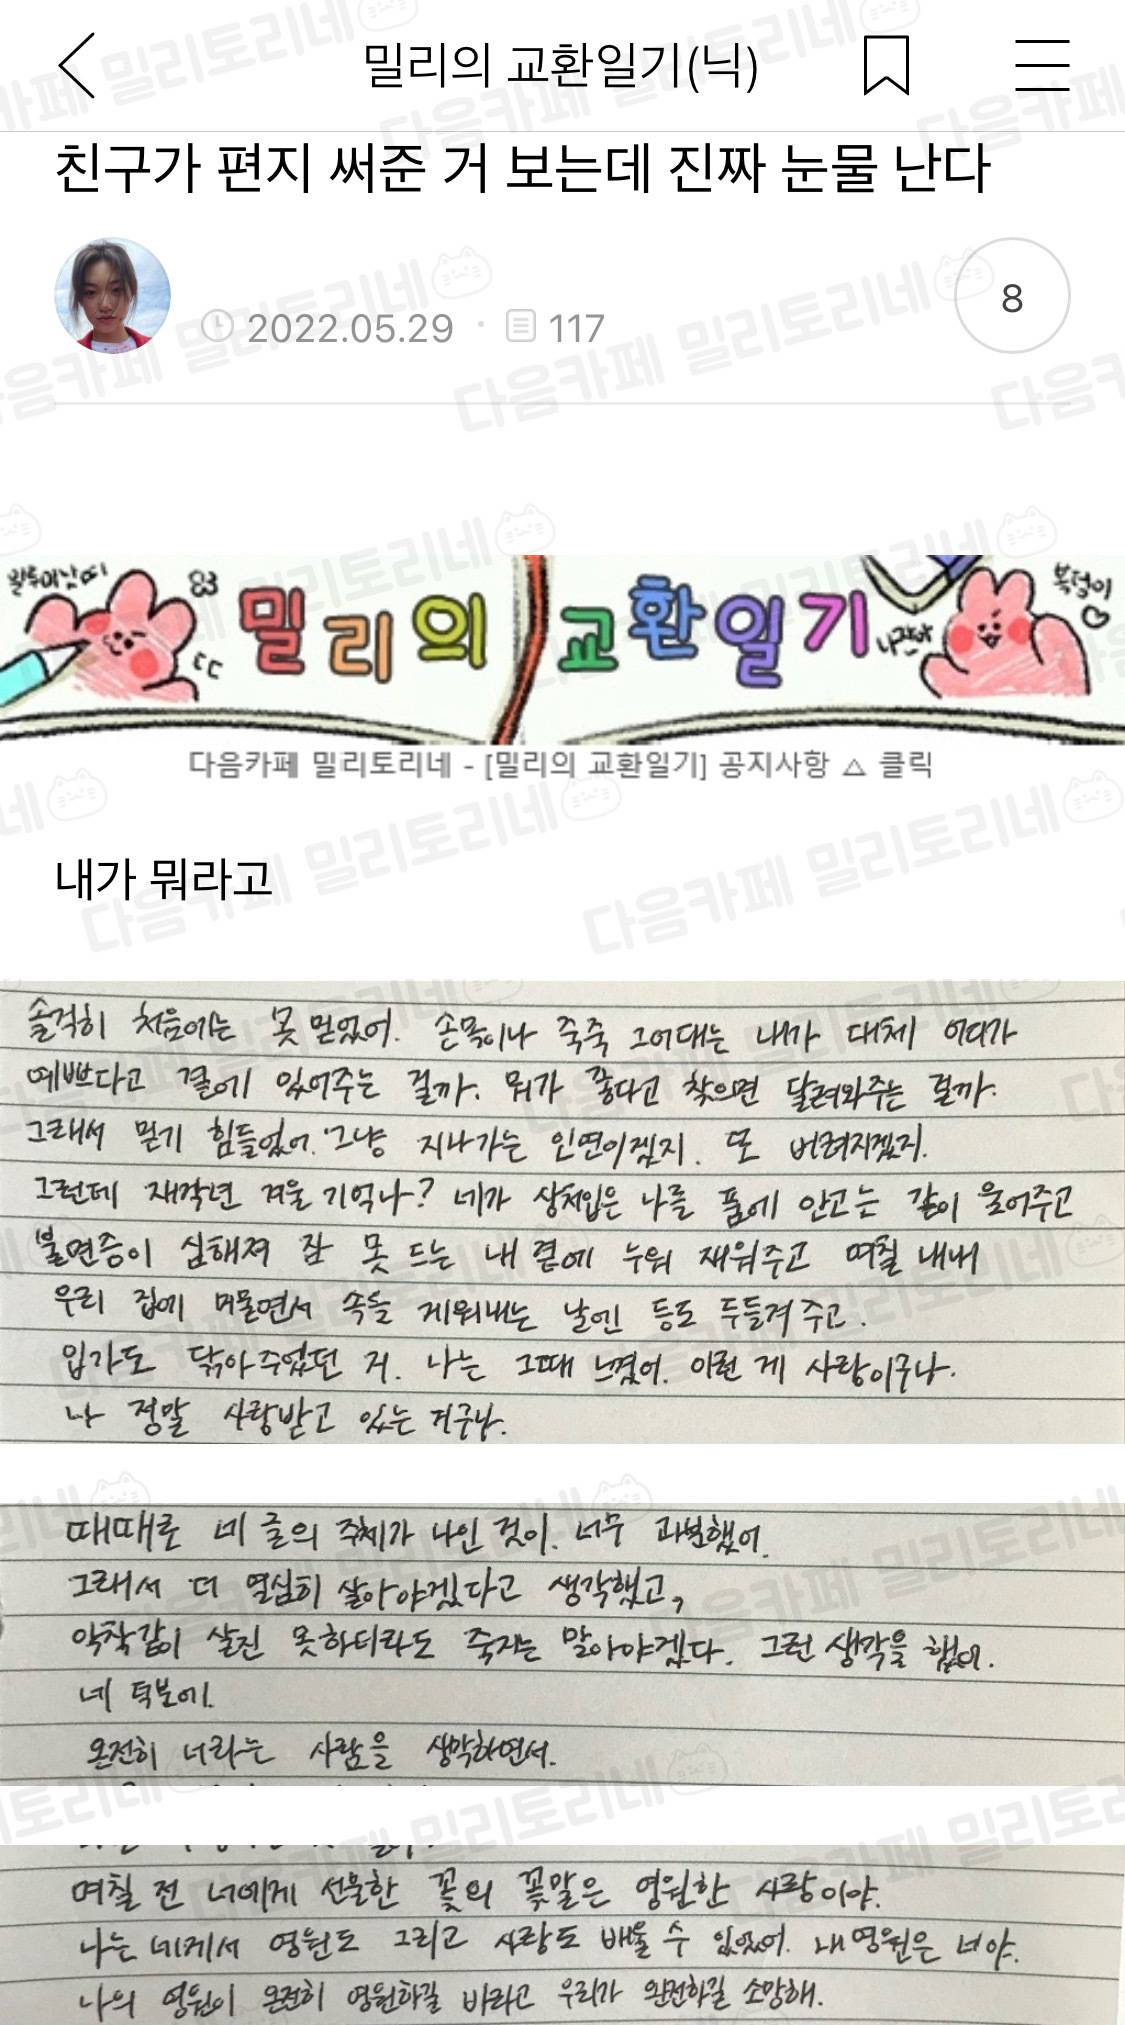 밀리의 교환일기(닉)
친구가 편지 써준 거 보는데 진짜 눈물 난다
2022.05.29 · 117
8
밀리의 교환일기
복덩이
다음카페 밀리토리네 - [밀리의 교환일기] 공지사항 △ 클릭
내가 뭐라고
솔직히 처음에는 못 믿었어. 손목이나 죽죽 그어대는 내가 대체 어디가
예쁘다고 곁에 있어주는 걸까. 뭐가 좋다고 찾으면 달려와주는 걸까.
그래서 믿기 힘들었어. 그냥 지나가는 인연이겠지. 또 버려지겠지.
그런데 재작년 겨울 기억나? 네가 상처입은 나를 품에 안고는 같이 울어주고
불면증이 심해져 잠 못 드는 내 곁에 누워 재워주고 며칠 내내
우리 집에 머물면서 속을 게워내는 날엔 등도 두들겨 주고.
입가도 닦아주었던 거. 나는 그때 느꼈어. 이런 게 사랑이구나.
나 정말 사랑받고 있는 거구나.
때때로 네 글의 주체가 나인 것이. 너무 과분했어.
그래서 더 열심히 살아야겠다고 생각했고,
악착같이 살진 못하더라도 죽지는 말아야겠다. 그런 생각을 했어.
네 덕분에.
온전히 너라는 사람을 생각하면서.
며칠 전 너에게 선물한 꽃의 꽃말은 영원한 사랑이야.
나는 네게서 영원도 그리고 사랑도 배울 수 있었어. 내 영원은 너야.
나의 영원이 온전히 영원하길 바라고 우리가 완전하길 소망해.
다음카페 밀리토리네